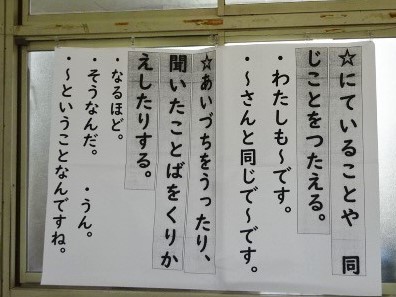 ☆にていることや 同
じことをつたえる。
・わたしも～です。
・～さんと同じで～です。
☆あいづちをうったり、
聞いたことばをくりか
えしたりする。
・なるほど。
・そうなんだ。 ・うん。
・～ということなんですね。